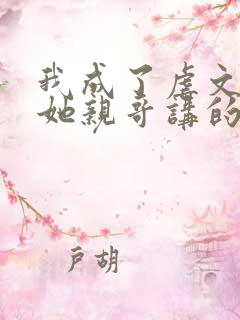 我成了虐文
她親哥講的
戶胡